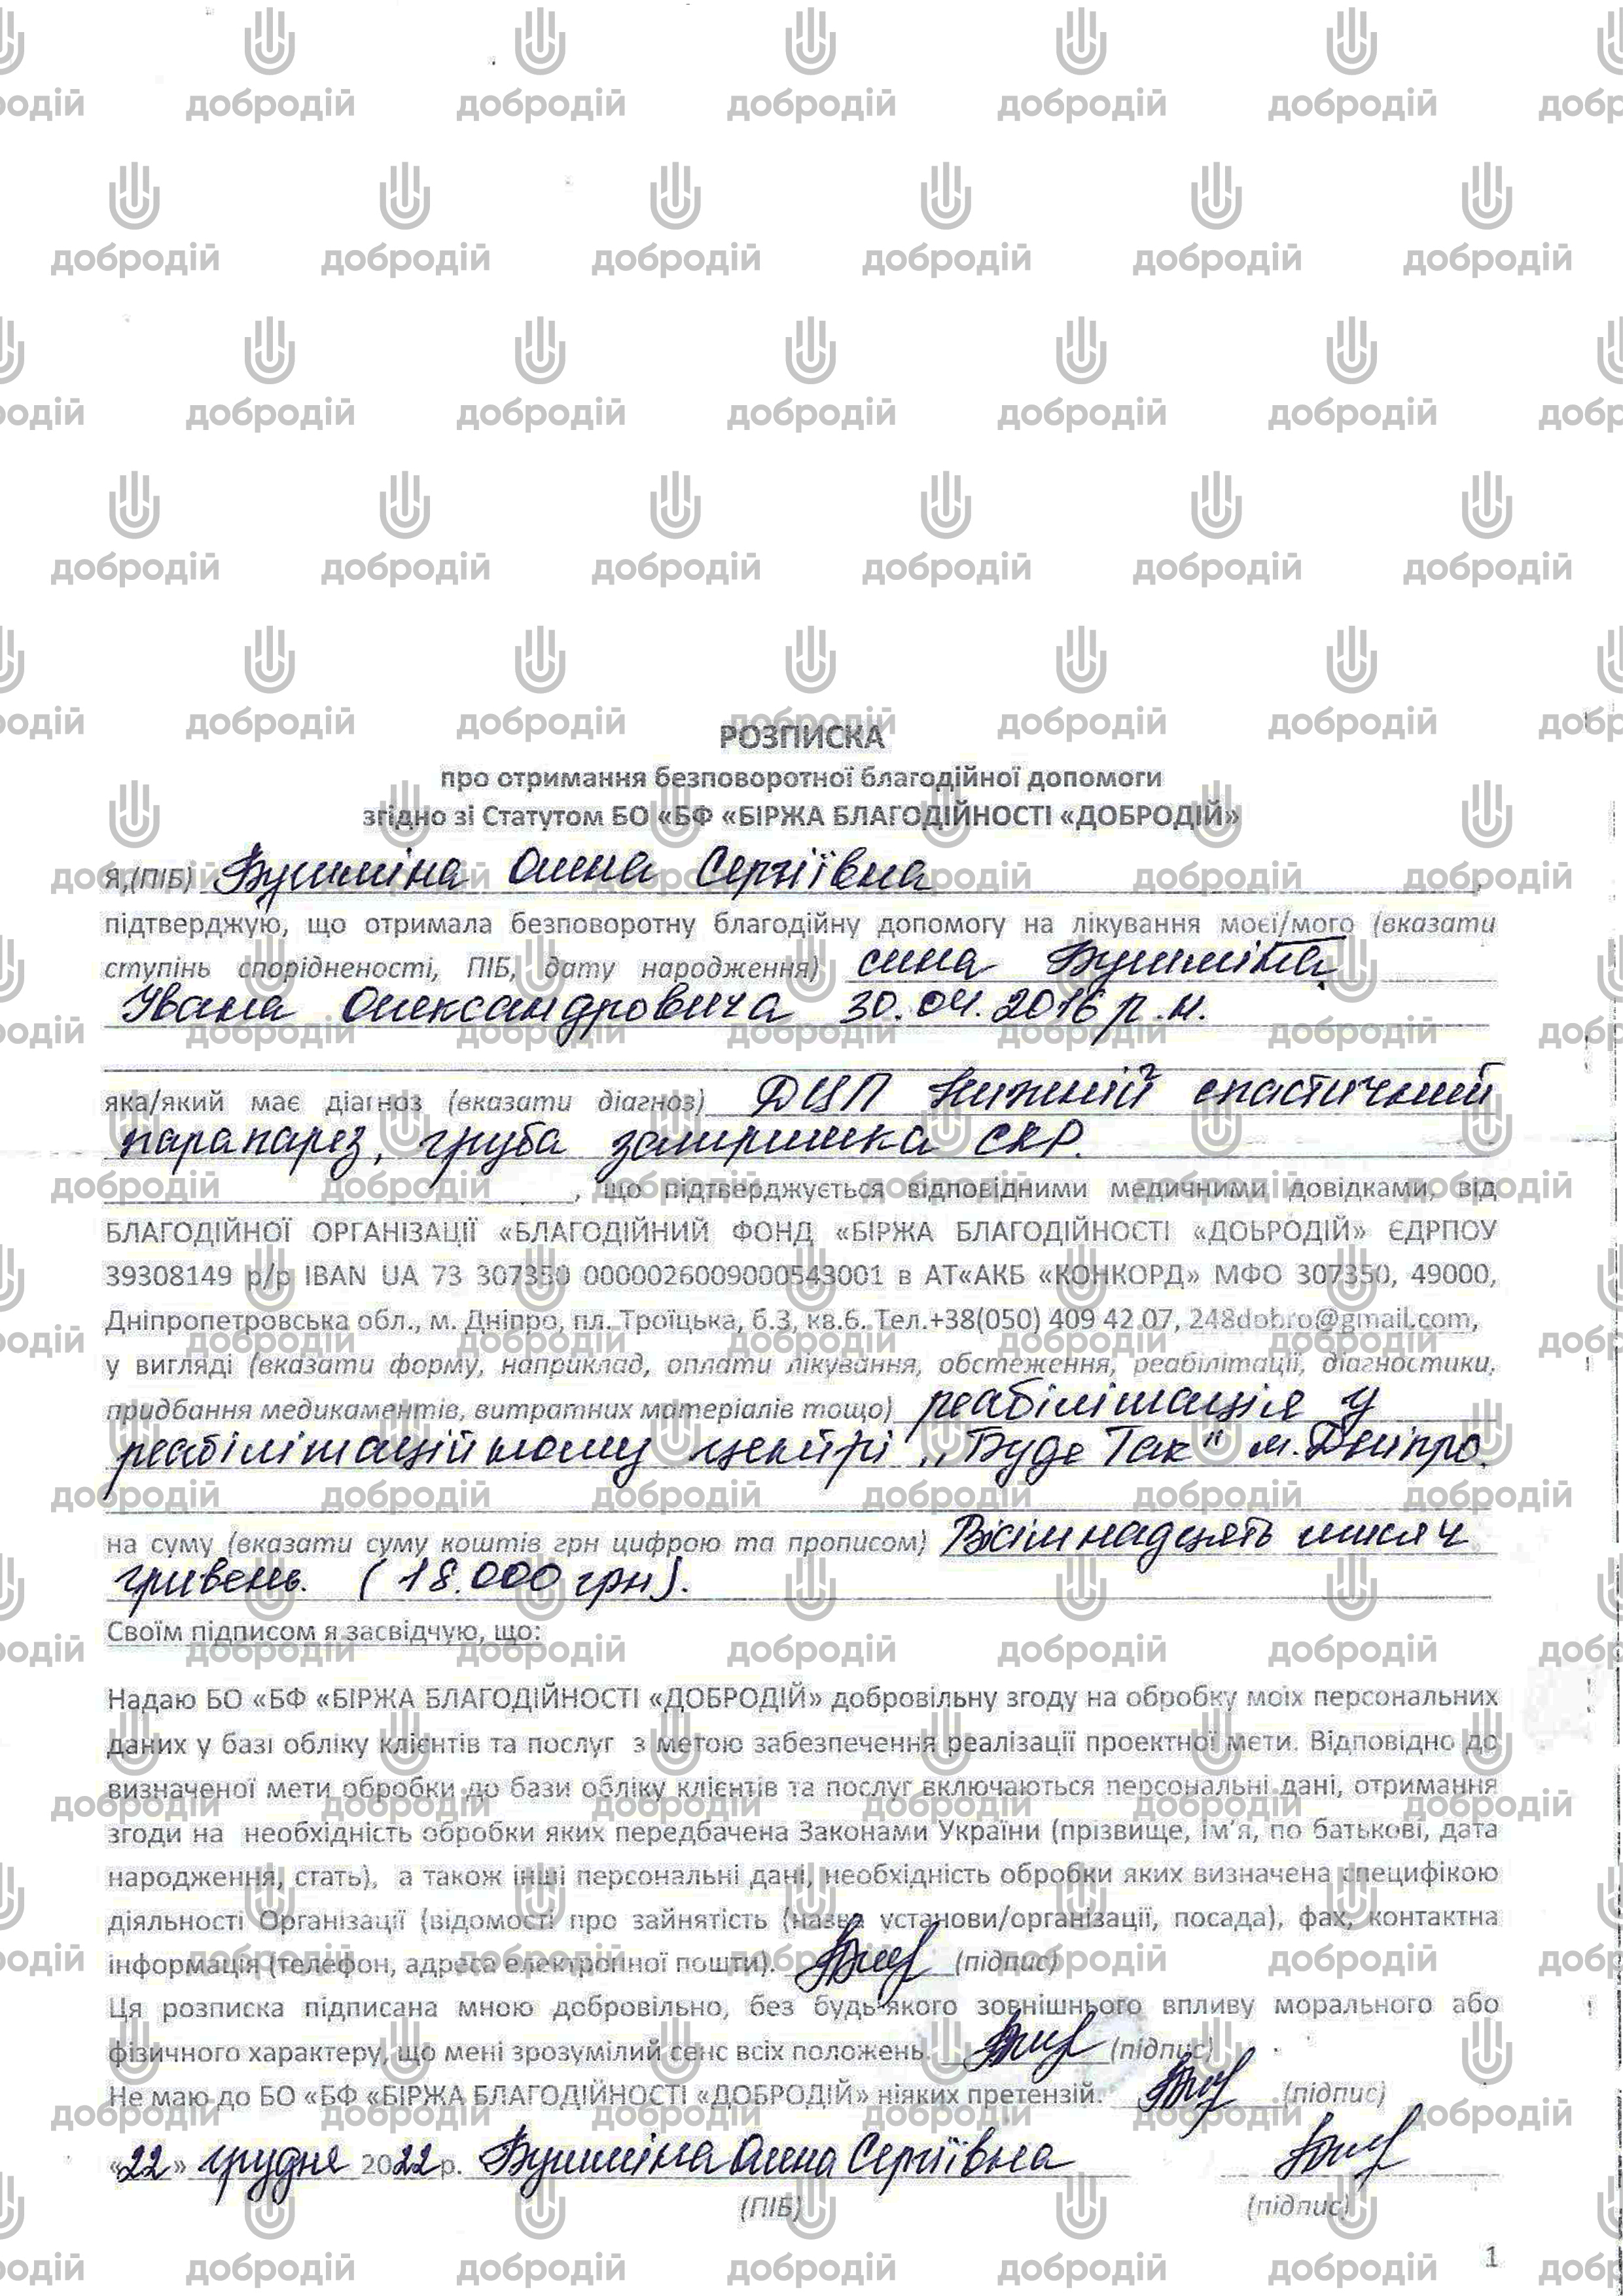 РОЗПИСКА
про отримання безповоротної благодійної допомоги
згідно зі Статутом БО «БФ «БІРЖА БЛАГОДІЙНОСТІ «ДОБРОДІЙ»
Я,(ПІБ) Бушміна Олена Сергіївна
підтверджую, що отримала безповоротну благодійну допомогу на лікування моєї/мого (вказати
ступінь спорідненості, ПІБ, дату народження) сина Бушміна
Івана Олександровича 30.04.2016 р.н.
яка/який має діагноз (вказати діагноз) ДЦП Нижній спастичний
парапарез, груба затримка СКР.
, що підтверджується відповідними медичними довідками, від
БЛАГОДІЙНОЇ ОРГАНІЗАЦІЇ «БЛАГОДІЙНИЙ ФОНД «БІРЖА БЛАГОДІЙНОСТІ «ДОБРОДІЙ» ЄДРПОУ
39308149 р/р IBAN UA 73 307350 0000026009000543001 в АТ«АКБ «КОНКОРД» МФО 307350, 49000,
Дніпропетровська обл., м. Дніпро, пл. Троїцька, б.3, кв.6. Тел.+38(050) 409 42 07, 248dobro@gmail.com,
у вигляді (вказати форму, наприклад, оплати лікування, обстеження, реабілітації, діагностики,
придбання медикаментів, витратних матеріалів тощо) реабілітація у
реабілітаційному центрі „Буде Так" м. Дніпро.
на суму (вказати суму коштів грн цифрою та прописом) Вісімнадцять тисяч
гривень. (18.000 грн).
Своїм підписом я засвідчую, що:
Надаю БО «БФ «БІРЖА БЛАГОДІЙНОСТІ «ДОБРОДІЙ» добровільну згоду на обробку моїх персональних
даних у базі обліку клієнтів та послуг з метою забезпечення реалізації проектної мети. Відповідно до
визначеної мети обробки до бази обліку клієнтів та послуг включаються персональні дані, отримання
згоди на необхідність обробки яких передбачена Законами України (прізвище, ім'я, по батькові, дата
народження, стать), а також інші персональні дані, необхідність обробки яких визначена специфікою
діяльності Організації (відомості про зайнятість (назва установи/організації, посада), фах, контактна
інформація (телефон, адреса електронної пошти). (підпис)
Ця розписка підписана мною добровільно, без будь-якого зовнішнього впливу морального або
фізичного характеру, що мені зрозумілий сенс всіх положень. (підпис)
Не маю до БО «БФ «БІРЖА БЛАГОДІЙНОСТІ «ДОБРОДІЙ» ніяких претензій. (підпис)
«22» грудня 2022 р. Бушміна Олена Сергіївна
(ПІБ) (підпис)
1
добродій